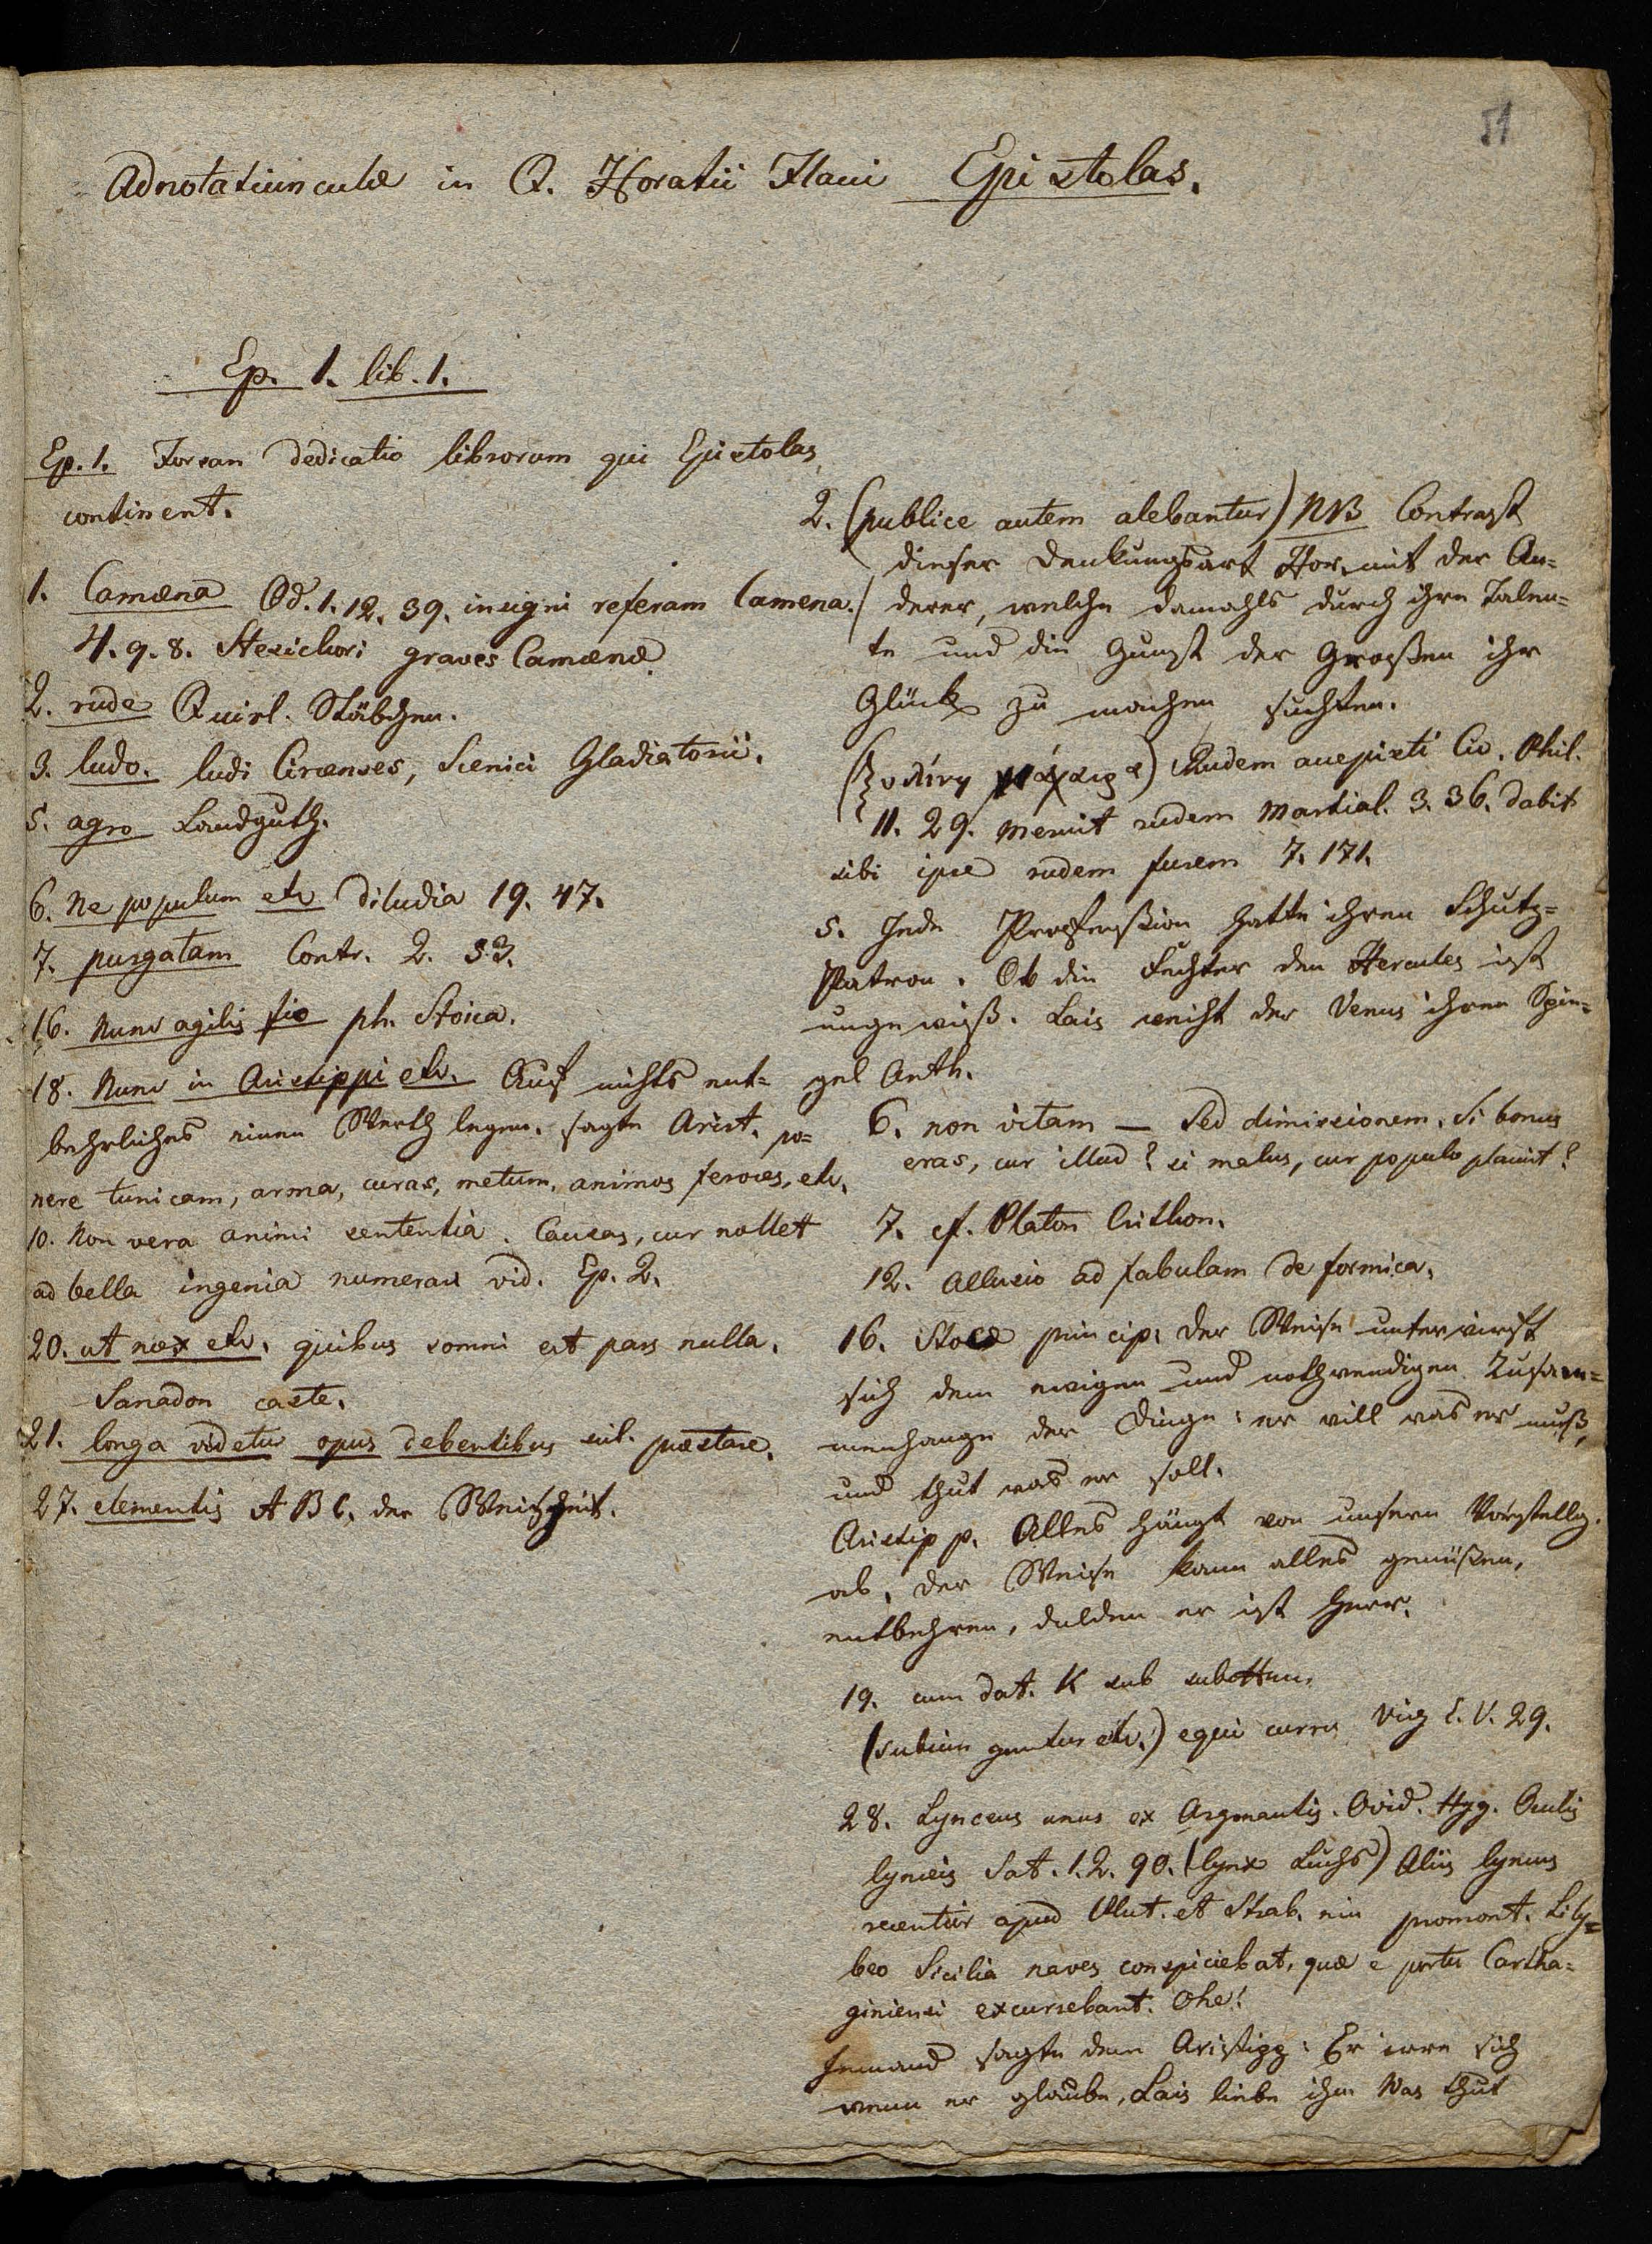 51
Adnotatiunculæ in Q. Horatii Flaui Epistolas.
Ep. 1. lib. 1.
Ep. 1. Forsan dedicatio librorum qui Epistolas
continent.
1. Camæna Od. 1. 12. 39. insigni referam Camena.
4. 9. 8. Stesichori graves Camenæ
2. rude Quirl. Stäbchen.
3. ludo. ludi Circenses, Scenici Gladiatorii.
5. agro Landguth.
6. Ne populum etc diludia 19. 47.
7. purgatam Contr. 2. 53.
16. Nunc agilis fio ph. Stoica.
18. Nunc in Aristippi etc. Auf nichts ent=
behrliches einen Werth legen. sagte Arist. po=
nere tunicam, arma, curas, metum, animos feroces, etc.
10. Non vera animi sententia. Causas, cur nollet
ad bella ingenia numerari vid. Ep. 2.
20. ut nox etc. quibus somni est pars nulla.
Sanadon caste.
21. longa videtur opus debentibus scil. præstare.
27. elementis A B C. der Weisheit.
2. (publice autem alebantur) NB Contrast
dieser Denkungsart Hor. mit der An=
derer, welche damahls durch ihre Talen=
te und die Gunst der Großen ihr
Glück zu machen suchten.
Rudem accepisti Cic. Phil.
11. 29. Meruit rudem Martial. 3. 36. dabit
sibi ipse rudem Iuven 7. 171.
5. Jede Profession hatte ihren Schutz=
Patron. Ob die Fechter den Hercules ist
ungewiß. Lais weiht der Venus ihren Spie=
gel Anth.
6. non vitam — Sed dimissionem. Si bonus
eras, cur illud? si malus, cur populo placuit?
7. cf. Platon Crithon.
12. Allusio ad fabulam de formica.
16. Stoæ princip. Der Weise unterwirft
sich dem ewigen und nothwendigen Zusam=
menhange der Dinge: er will was er muß,
und thut was er soll.
Aristipp. Alles hängt von unsern Vorstellg.
ab, der Weise kann alles genüßen,
entbehren, dulden er ist Herr.
19. cum dat. sub
(subiunguntur etc.) equi curru Virg E. V. 29.
28. Lynceus unus ex Argonautis. Ovid. Hyg. Oculis
lynceis Sat. 1. 2. 90. (lynx Luchs) Aliis lynceus
recentior apud Plut. et Strab. promont. Lily=
beo Sicilia naves conspiciebat, quæ e portu Cartha=
giniensi excursebant. Ohe!
Jemand sagte dem Aristipp: Er irre sich
wenn er glaube, Lais liebe ihn Was thut